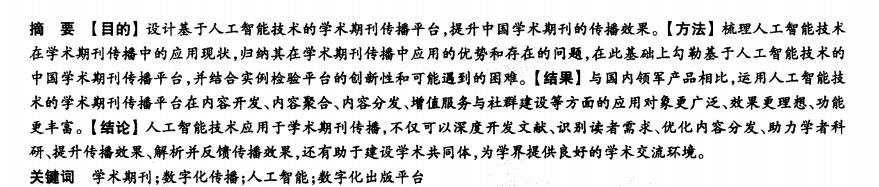 摘　要　【目的】设计基于人工智能技术的学术期刊传播平台,提升中国学术期刊的传播效果。【方法】梳理人工智能技术
在学术期刊传播中的应用现状,归纳其在学术期刊传播中应用的优势和存在的问题,在此基础上勾勒基于人工智能技术的
中国学术期刊传播平台,并结合实例检验平台的创新性和可能遇到的困难。【结果】与国内领军产品相比,运用人工智能技
术的学术期刊传播平台在内容开发、内容聚合、内容分发、增值服务与社群建设等方面的应用对象更广泛、效果更理想、功能
更丰富。【结论】人工智能技术应用于学术期刊传播,不仅可以深度开发文献、识别读者需求、优化内容分发、助力学者科
研、提升传播效果、解析并反馈传播效果,还有助于建设学术共同体,为学界提供良好的学术交流环境。
关键词　学术期刊;数字化传播;人工智能;数字化出版平台